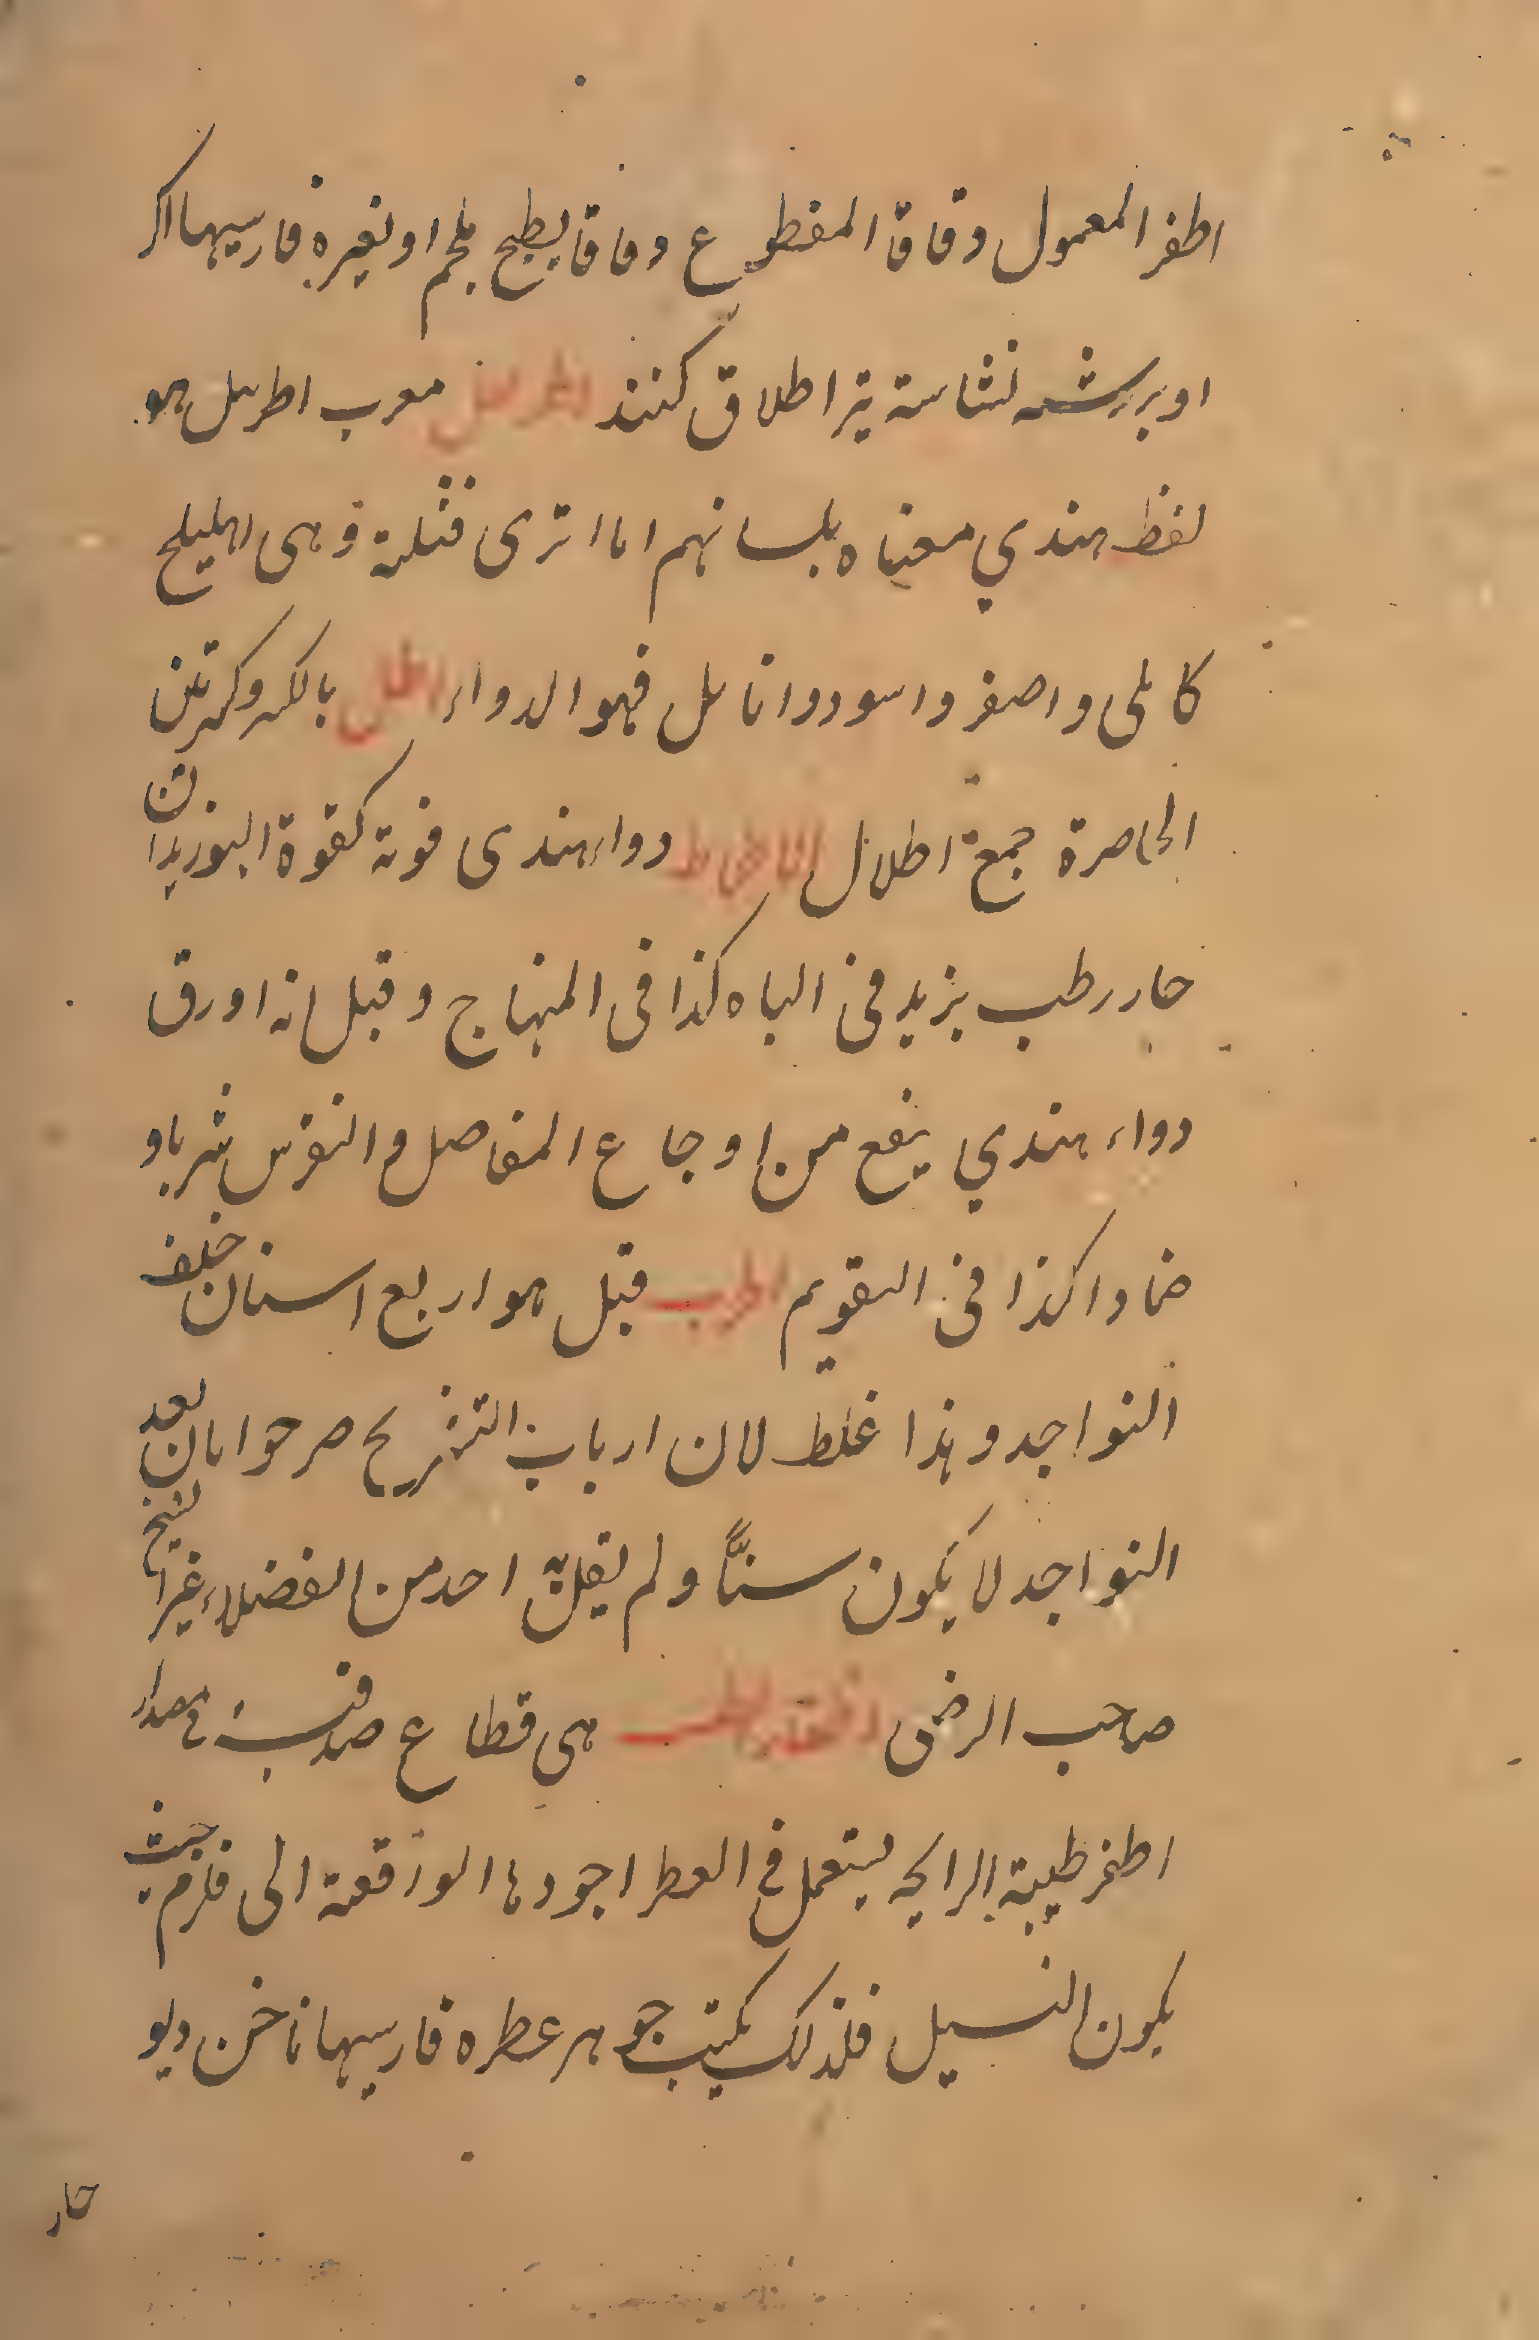 اطفر المعمول دقاقا المقطوع دقاقا يطبخ بلحم او بغيره فارسيها اكر
او بر رشته نشاسته نيز اطلاق كنند اطريفل معرب اطريپل هو
لفظ هندي معناه بلسانهم اما اترى فثلثة و هى اهليلج
كابلى و اصفر و اسود و اما بل فهو الدواء اطل بالكسر و كسرتين
الخاصرة جمعه اطلال اطماط دواء هندى قوته كقوة البوزيدان
حار رطب يزيد فى الباه كذا فى المنهاج و قيل انه اورق
دواء هندي ينفع من اوجاع المفاصل و النقرس شربا و
ضمادا كذا فى التقويم قيل هو اربع اسنان خلف
النواجد و هذا غلط لان ارباب التشريح صرحوا بان بعد
النواجد لا يكون سنًّا و لم يقل به احد من الفضلاء غير الشيخ
صاحب الرضى اظفار الطيب هى قطاع صدفية فى مقدار
اظفر طيبة الرايحه يستعمل فى العطر اجودها الواقعة الى قلزم حيث
يكون السنبل فلذلك يكتب جوهر عطره فارسيها ناخن ديو
حار